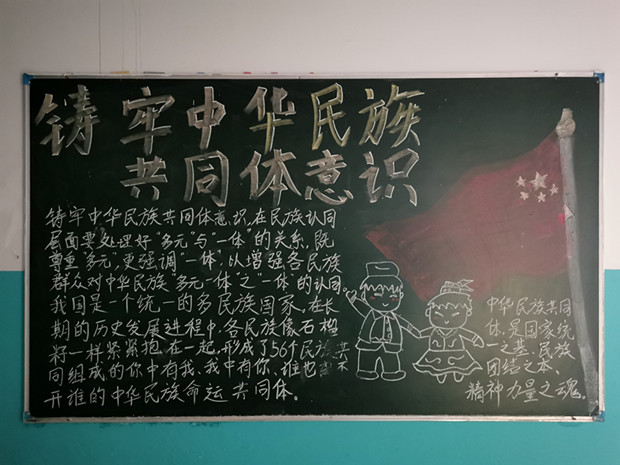 铸牢中华民族
共同体意识
铸牢中华民族共同体意识,在民族认同
层面要处理好"多元"与"一体"的关系,既
尊重"多元",更强调"一体",以增强各民族
群众对中华民族"多元一体"之"一体"的认同。
我国是一个统一的多民族国家。在长
期的历史发展进程中,各民族像石榴
籽一样紧紧抱在一起,形成了56个民族共
同组成的你中有我、我中有你、谁也离不
开谁的中华民族命运共同体。
中华民族共同
体,是国家统
一之基、民族
团结之本、
精神力量之魂。